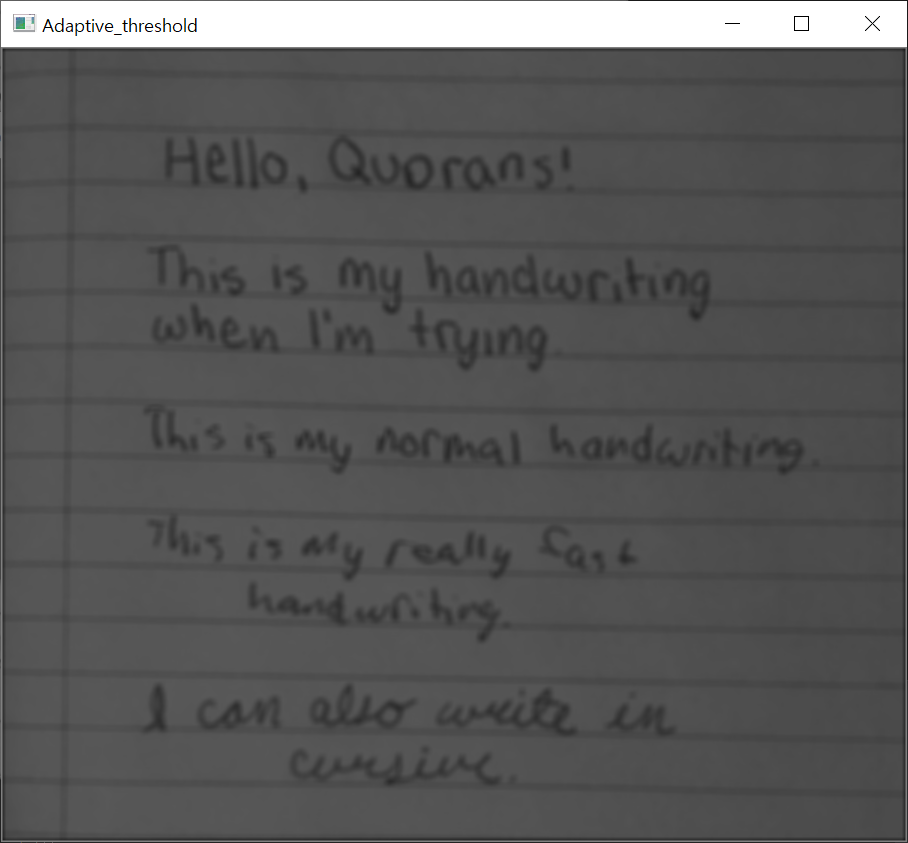 Adaptive_threshold
Hello, Quorans!
This is my handwriting
when I'm trying.
This is my normal handwriting.
This is my really fast
handwriting.
I can also write in
cursive.